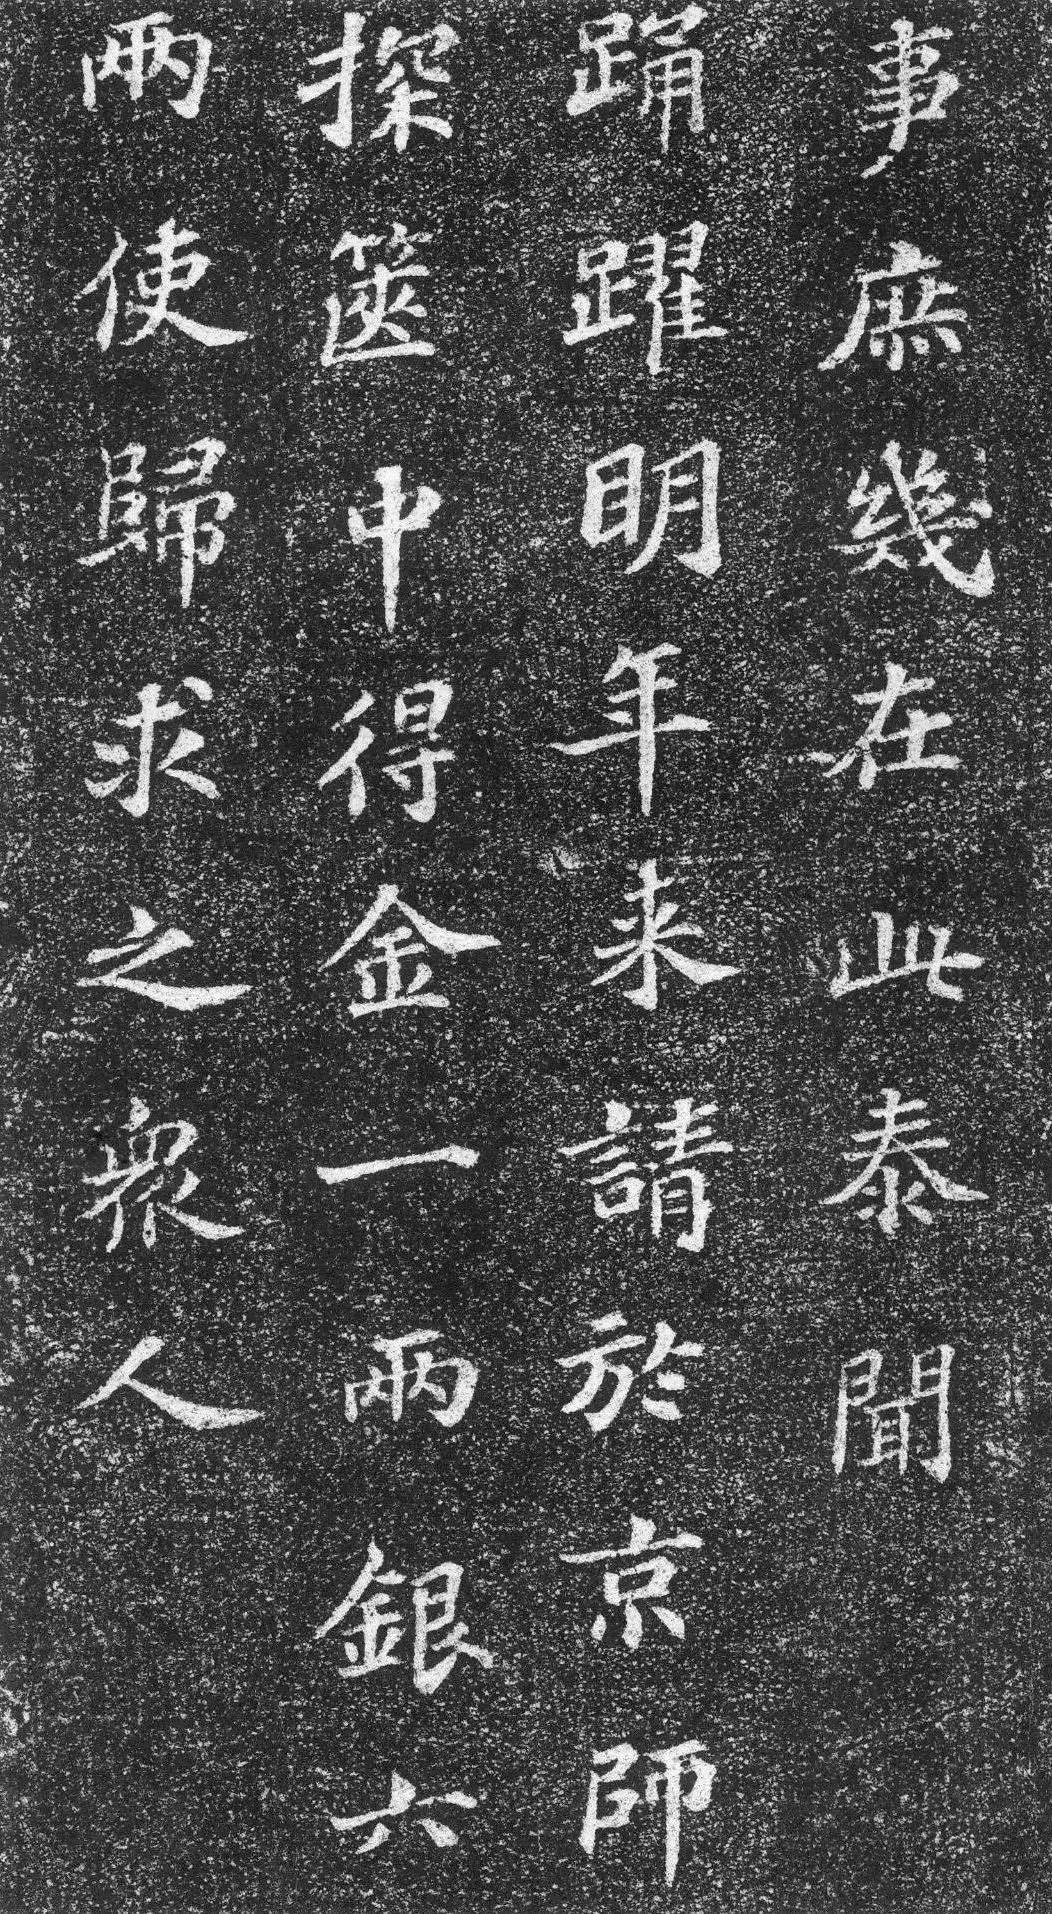 事庶幾在此泰聞
踊躍明年来請於京師
探篋中得金一兩銀六
兩使歸求之衆人